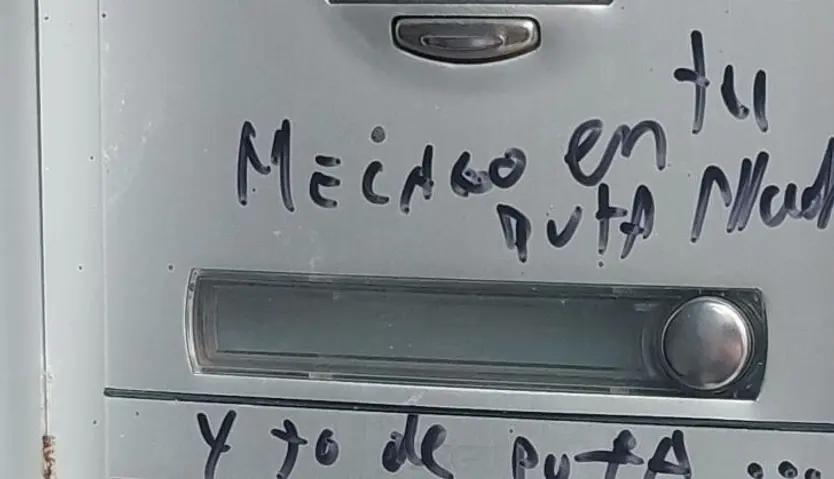 MECAGO en tu
PUTA Mad
Y to de PUTA ...